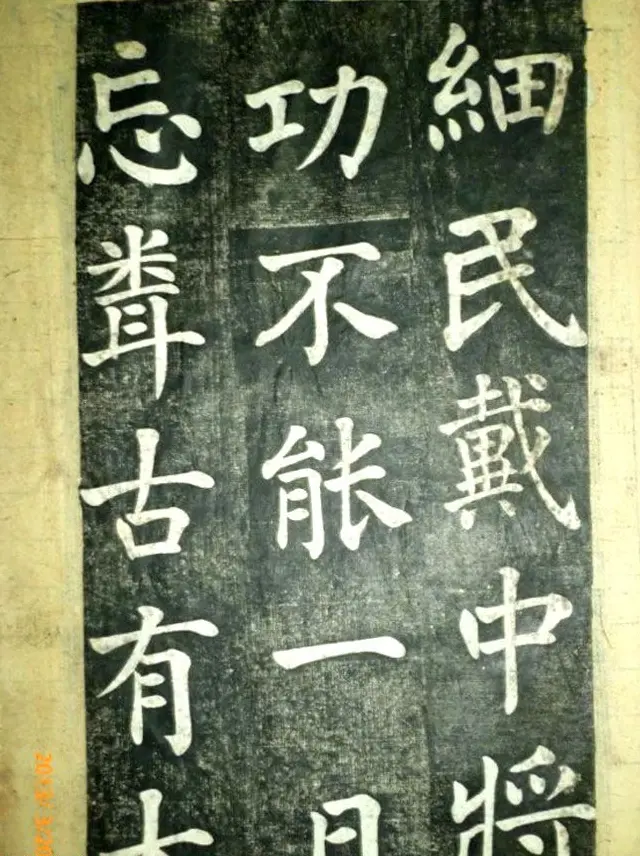 細民戴中將
功不能一日
忘古有